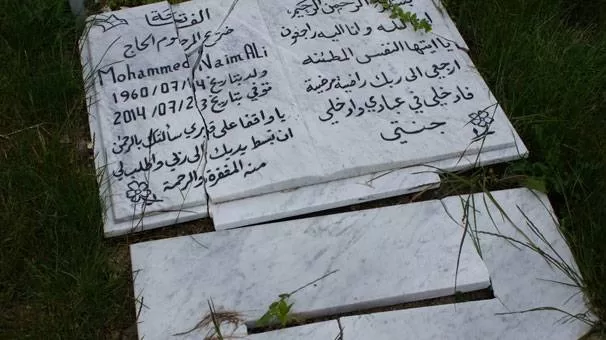 الفاتحة
ضريح المرحوم الحاج
Mohammed Naim ALi
ولد بتاريخ 1960/07/14
توفي بتاريخ 2014/07/23
يا واقفا على قبري سألتك بالرحمن
ان تبسط يديك الى ربي واطلب لي
منه المغفرة والرحمة
الرحمن الرحيم
لله وانا اليه راجعون
يا ايتها النفس المطمئنة
ارجعي الى ربك راضية مرضية
فادخلي في عبادي وادخلي
جنتي